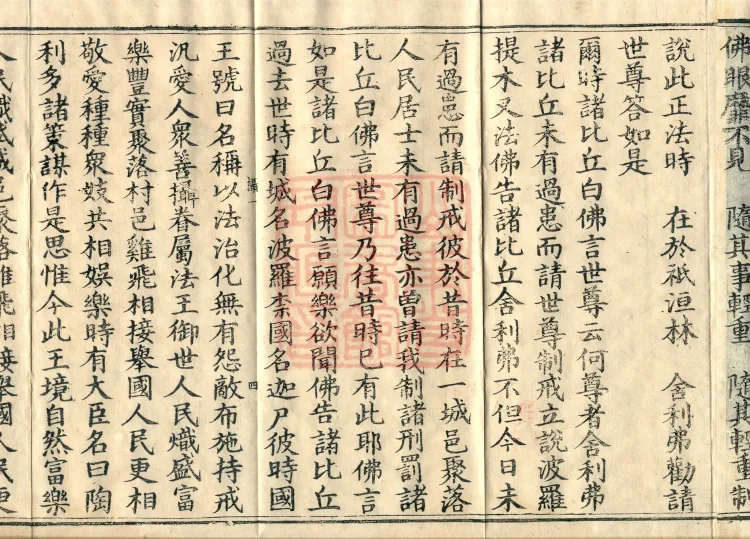 佛眼靡不見　隨其事輕重　隨其輕重制
說此正法時　在於祇洹林　舍利弗勸請
世尊答如是
爾時諸比丘白佛言世尊云何尊者舍利弗
諸比丘未有過患而請世尊制戒立說波羅
提木叉法佛告諸比丘舍利弗不但今日未
有過患而請制戒彼於昔時在一城邑聚落
人民居士未有過患亦曾請我制諸刑罰諸
比丘白佛言世尊乃往昔時已有此耶佛言
如是諸比丘白佛言願樂欲聞佛告諸比丘
過去世時有城名波羅柰國名迦尸彼時國
攝一　四
王號曰名稱以法治化無有怨敵布施持戒
汎愛人衆善攝眷屬法王御世人民熾盛富
樂豐實聚落村邑雞飛相接舉國人民更相
敬愛種種衆妓共相娛樂時有大臣名曰陶
利多諸策謀作是思惟今此王境自然富樂
人民熾盛城邑聚落雞飛相接舉國人民更